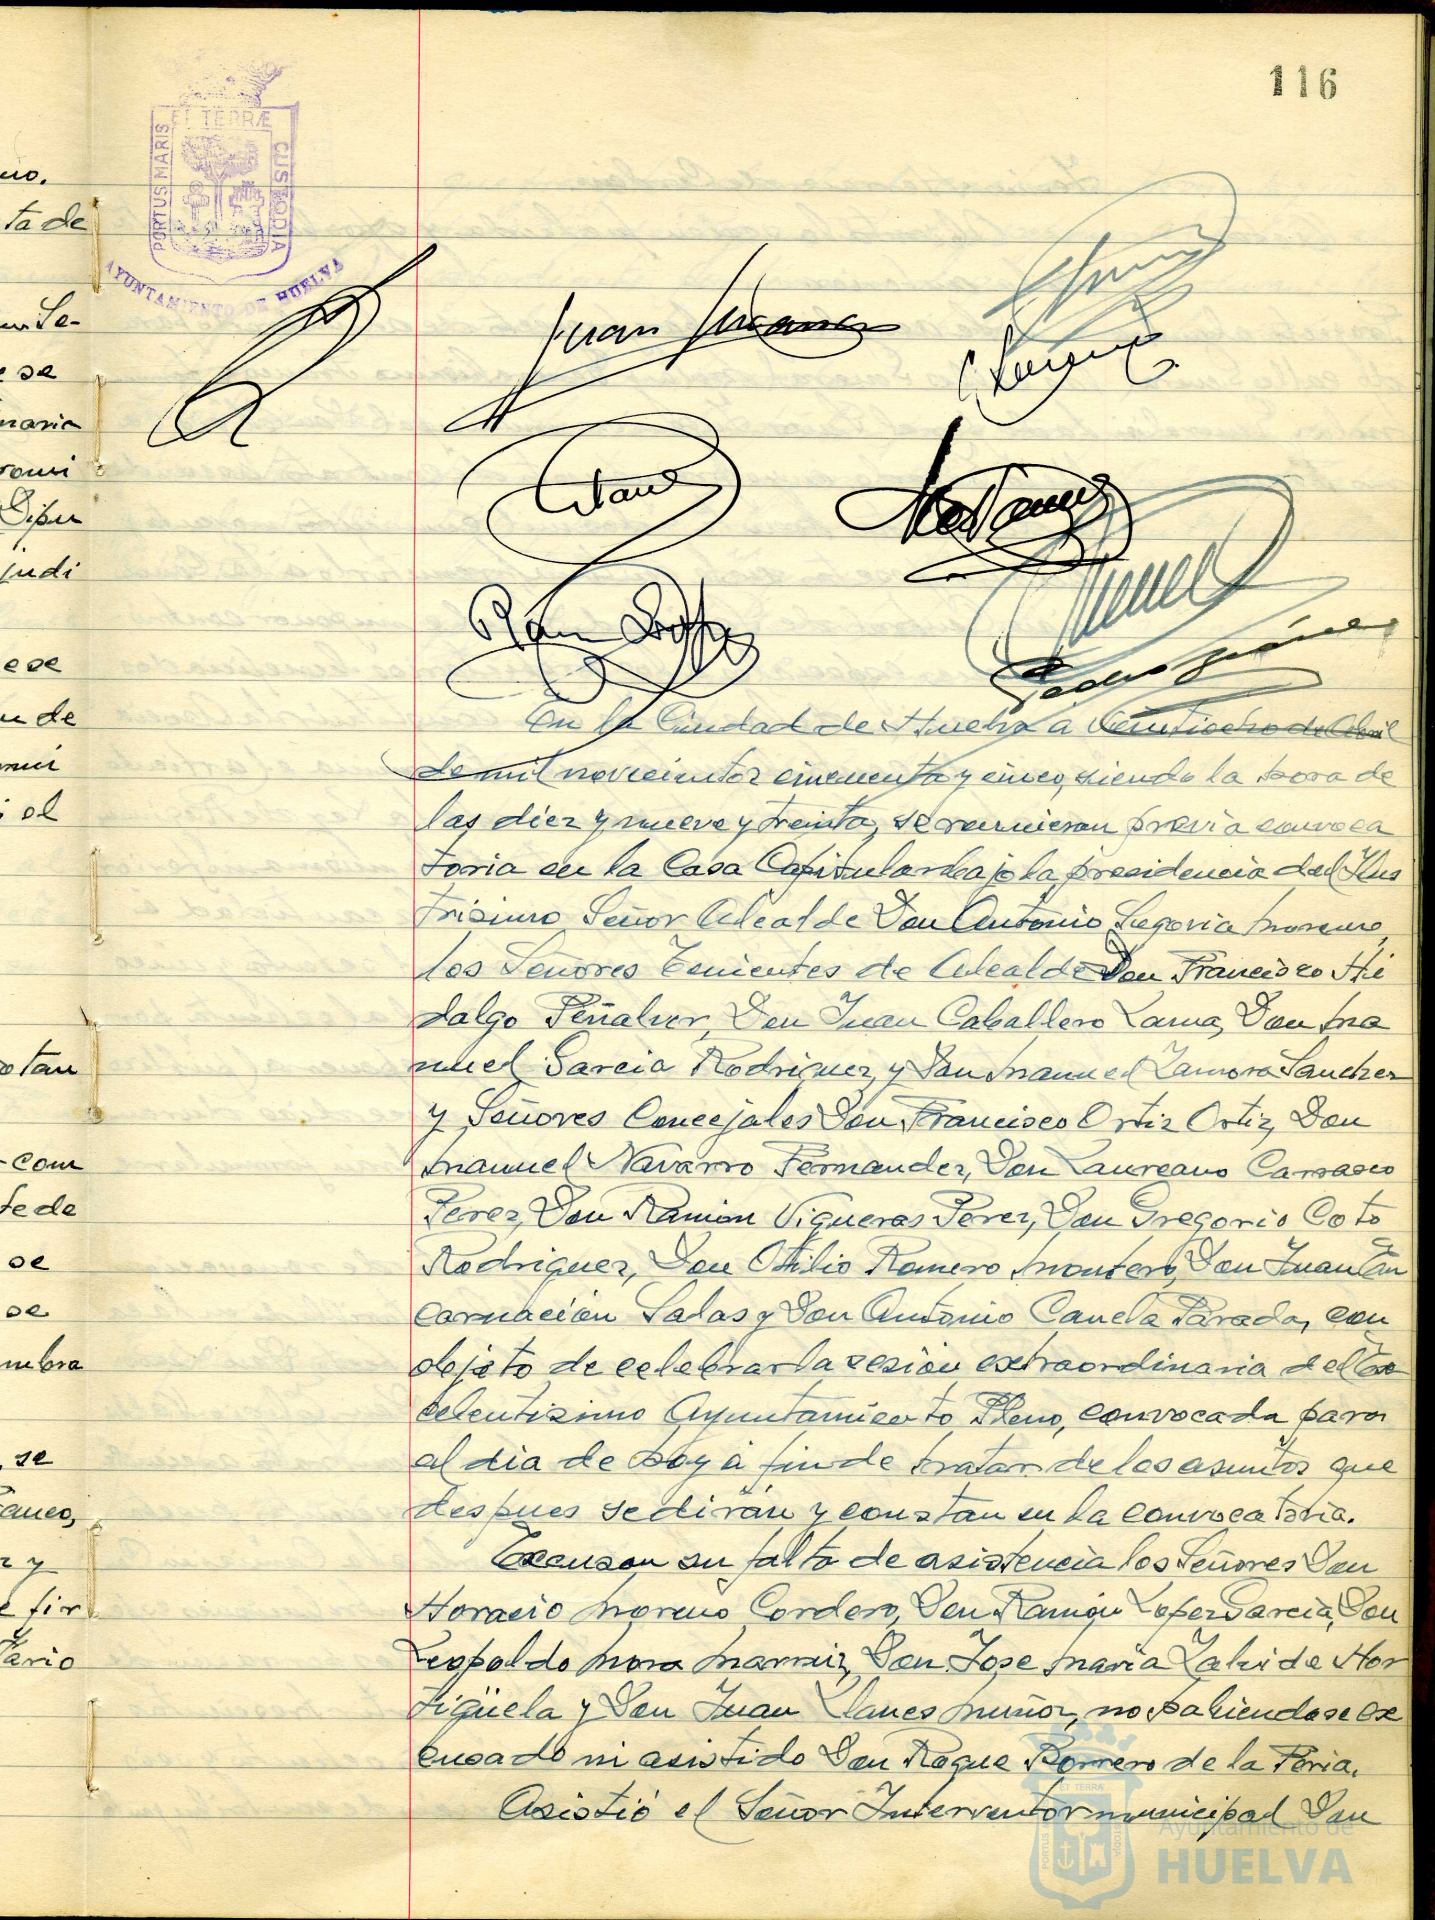 116
ET TERRÆ
PORTUS MARIS
CUSTODIA
AYUNTAMIENTO DE HUELVA
no.
ta de
se
naria
judi
ese
de
el
otan
com
se
se
mbra
se
y
fir
tario
Juan Jiménez
En la Ciudad de Huelva a veintiocho de Abril
de mil novecientos cincuenta y cinco, siendo la hora de
las diez y nueve y treinta, se reunieron previa convoca
toria en la Casa Capitular bajo la presidencia del Ilus
trisimo Señor Alcalde Don Antonio Segovia Moreno,
los Señores Tenientes de Alcalde Don Francisco Hi
dalgo Peñalver, Don Juan Caballero Lama, Don Ma
nuel Garcia Rodriguez, y Don Manuel Zamora Sanchez
y Señores Concejales Don Francisco Ortiz Ortiz, Don
Manuel Navarro Fernandez, Don Laureano Carrasco
Perez, Don Ramón Vigueras Perez, Don Gregorio Coto
Rodriguez, Don Otilio Romero Montero, Don Juan En
carnación Salas y Don Antonio Canela Parada, con
objeto de celebrar la sesión extraordinaria del Ex
celentisimo Ayuntamiento Pleno, convocada para
al dia de hoy a fin de tratar de los asuntos que
despues se dirán y constan en la convocatoria.
Excusan su falta de asistencia los Señores Don
Horacio Moreno Cordero, Don Ramón Lopez Garcia, Don
Leopoldo Mora Don Jose Maria Zalvide Hor
tigüela y Don Juan Llanes Muñoz, no habiendose ex
cusado ni asistido Don Roque Borrero de la Feria.
Asistió el Señor Interventor municipal Don
Ayuntamiento de
HUELVA